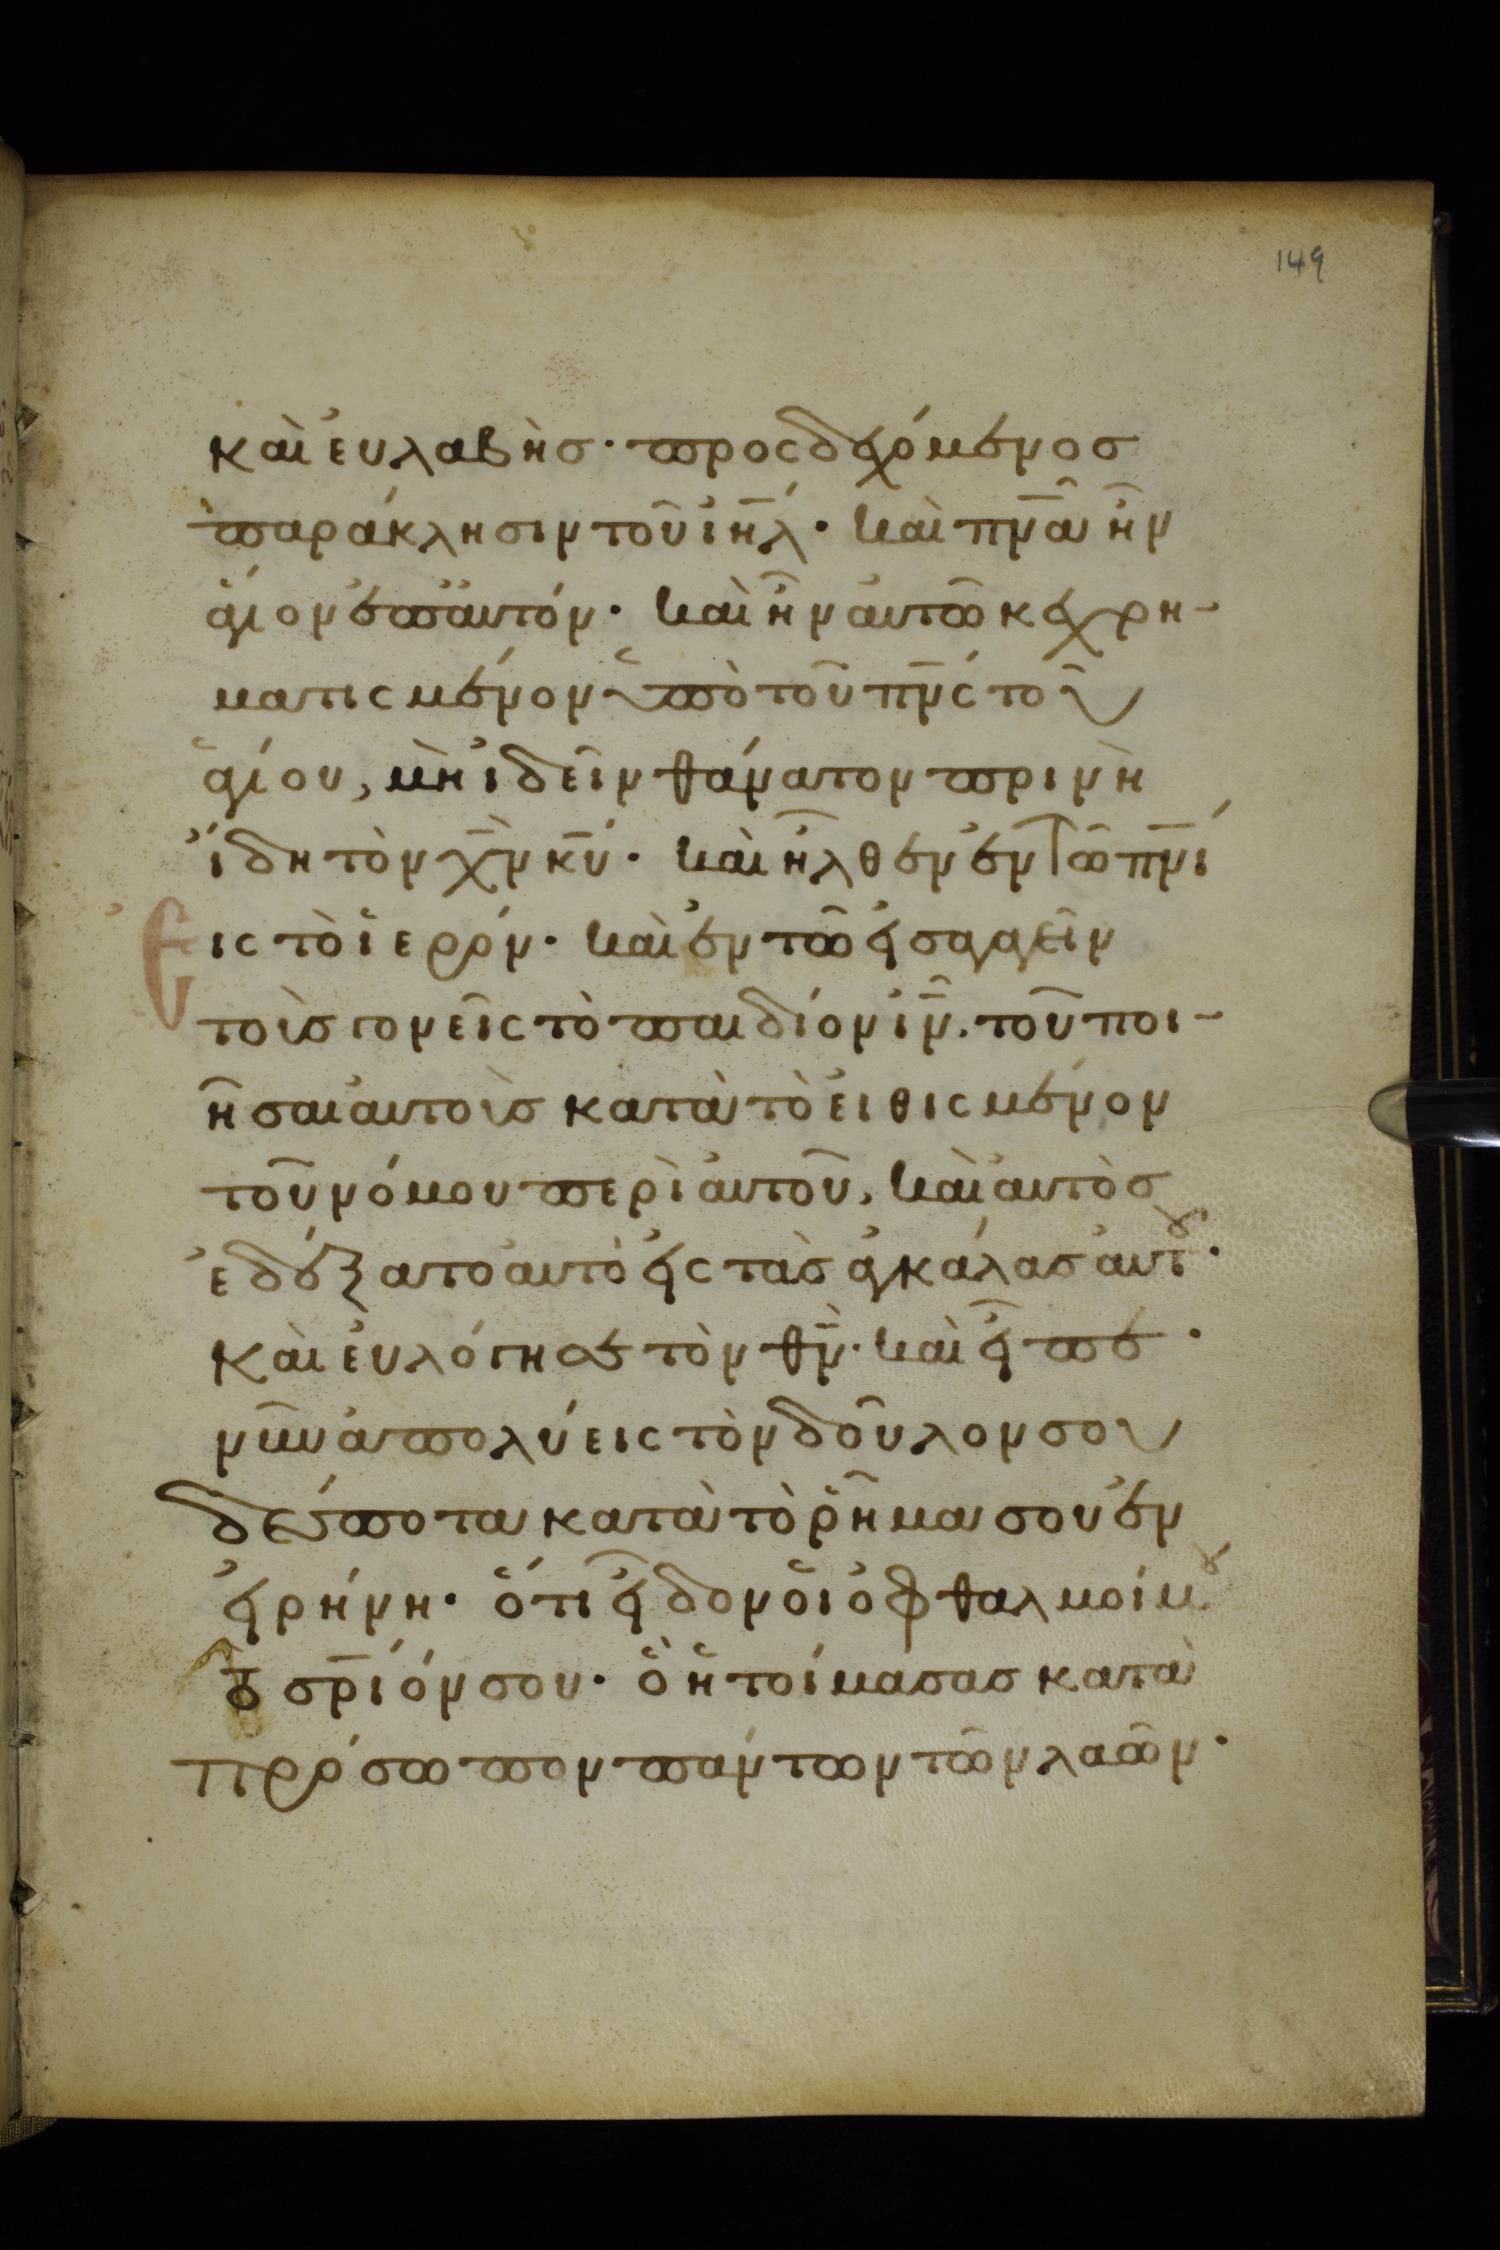 149
καὶ ἐυλαβὴσ· προσδεχόμενοσ
παράκλησιν τοῦ ἰη̅λ· καὶ πν̅α ἦν
ἅγιον ἐπ' ἀυτόν· καὶ ἦν ἀυτῶ κεχρη-
ματισμένον ὑπὸ του πν̅ς τοῦ
ἁγίου, μὴ ἰδεῖν θάνατον πρινὴ
ἴδη τὸν χ̅ν κ̅υ· καὶ ἦλθεν ἐν τῶ πν̅ι
Εἰς τὸ ἱερόν· καὶ ἐν τῶ ἐισαγαγεῖν
τοὺσ γονεῖς τὸ παιδίον ἰ̅ν. τοῦ ποι-
ῆσαι ἀυτοὺσ κατὰ τὸ ἐιθισμένον
τοῦ νόμου περὶ ἀυτοῦ, καὶ ἀυτὸσ
ἐδέξατο ἀυτὸ ἐις τὰσ ἀγκάλασ ἀυτοῦ·
καὶ ἐυλόγησε τὸν θ̅ν· καὶ εἶπε·
νῦν ἀπολύεις τὸν δοῦλον σου
δέσποτα κατὰ τὸ ῥῆμα σου ἐν
ἐιρήνη· ὅτι εἶδον ὁι ὀφθαλμοί μου
τὸ σρ̅ιόν σου· ὃ ἡτοίμασασ κατὰ
πρόσωπον πάντων τῶν λαῶν·